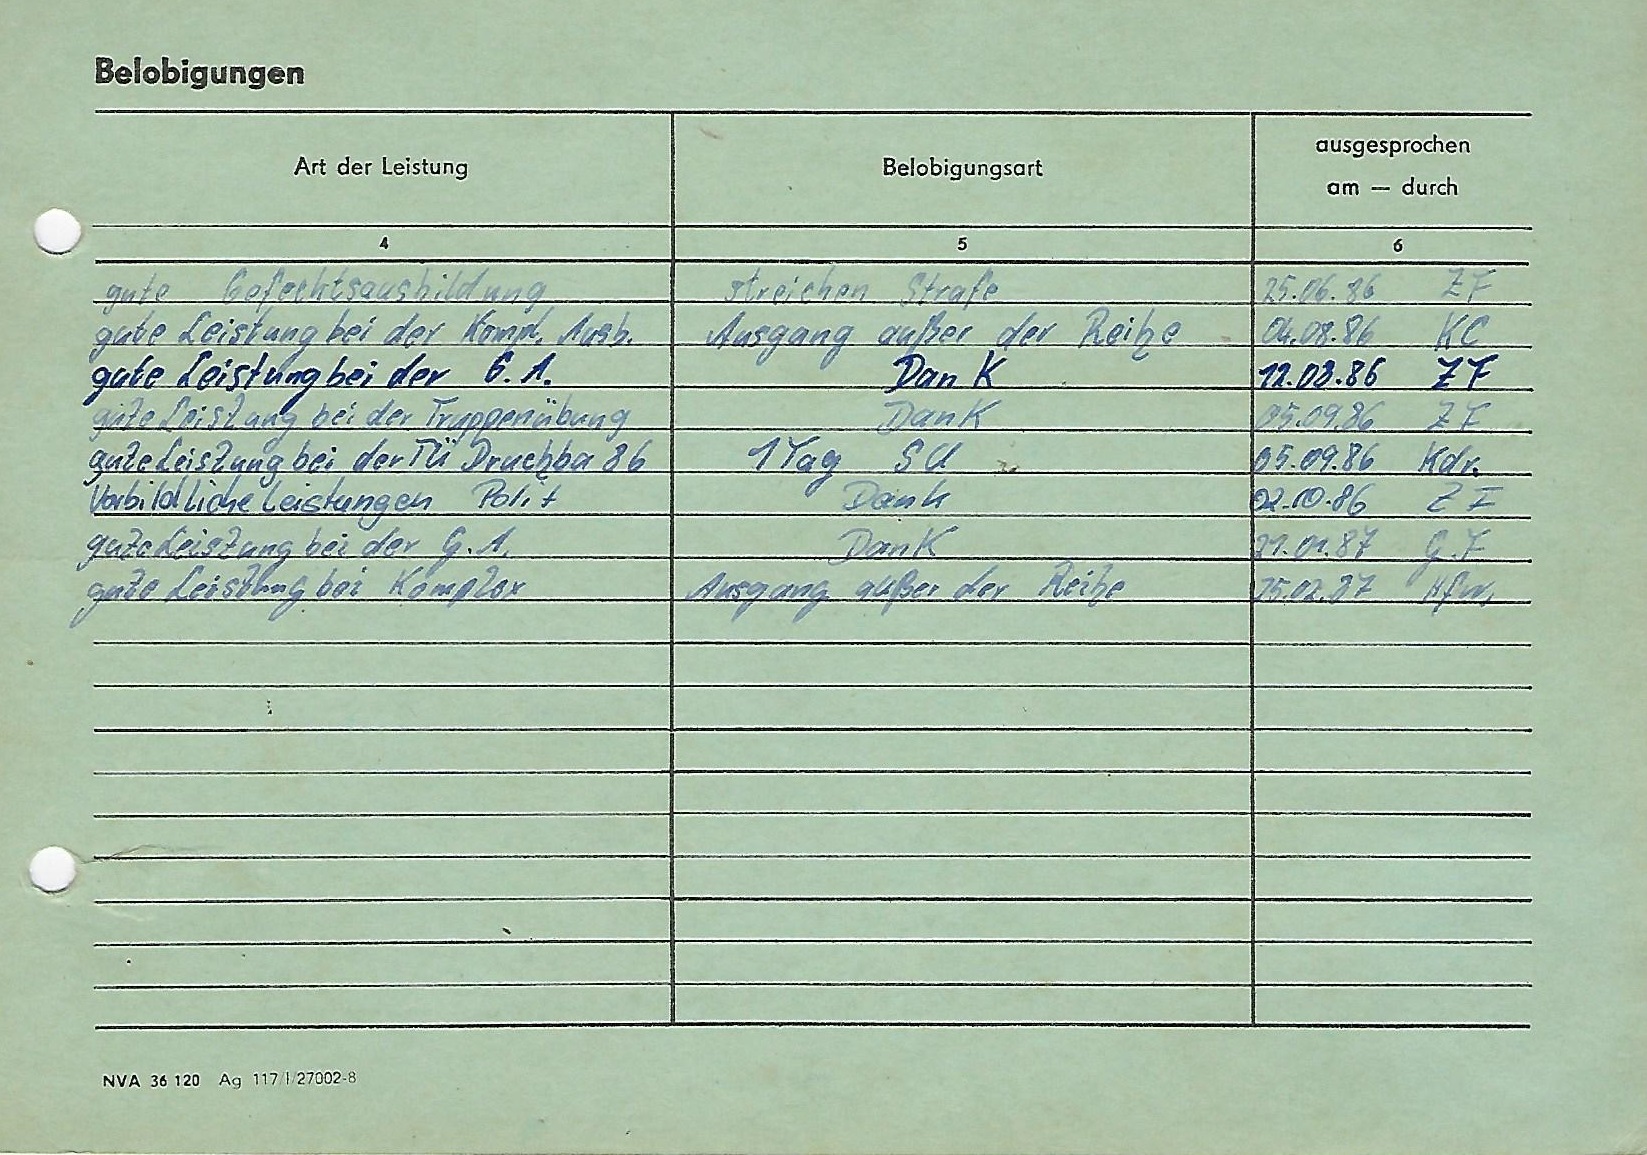 Belobigungen
Art der Leistung Belobigungsart ausgesprochen
am — durch
4 5 6
gute Gefechtsausbildung streichen Strafe 25.06.86 ZF
gute Leistung bei der Kompl. Ausb. Ausgang außer der Reihe 04.08.86 KC
gute Leistung bei der G.A. Dank 12.08.86 ZF
gute Leistung bei der Truppenübung Dank 05.09.86 ZF
gute Leistung bei der TÜ Druchba 86 1 Tag SU 05.09.86 Kdr.
Vorbildliche Leistungen Polit Dank 02.10.86 ZF
gute Leistung bei der G.A. Dank 21.01.87 G.F
gute Leistung bei Komplex Ausgang außer der Reihe 25.02.87 Hfw.
NVA 36 120 Ag 117/I/27002-8